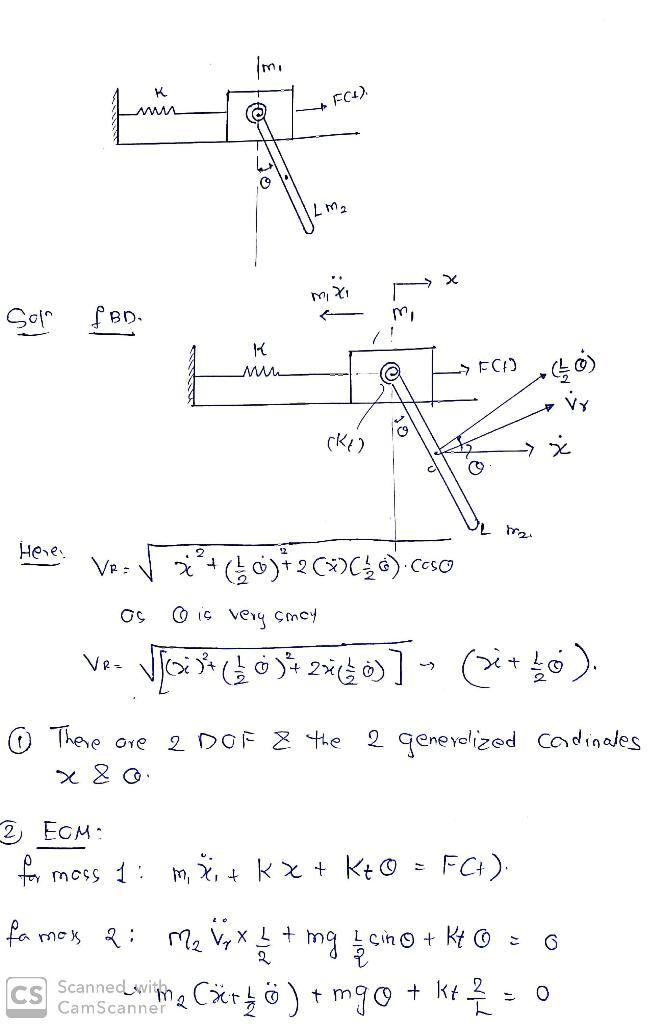 m₁
K
F(t).
θ
L m₂
Solⁿ FBD.
m₁ẍ₁
x
m₁
K
F(t)
(L/2 θ̇)
V̇r
(Kt)
θ
ẋ
c
θ.
L m₂.
Here: VR = √ẋ² + (L/2 θ̇)² + 2(ẋ)(L/2 θ̇).cosθ
as θ is very small
VR = √[(ẋ)² + (L/2 θ̇)² + 2ẋ(L/2 θ̇)] → (ẋ + L/2 θ̇).
① There are 2 DOF & the 2 generalized cordinates
x & θ.
② EOM:
for mass 1: m₁ẍ₁ + Kx + Ktθ = F(t).
for mass 2: m₂ V̈r × L/2 + mg L/2 sinθ + Kt θ = 0
m₂(ẍ + L/2 θ̈) + mgθ + Kt 2/L = 0
CS Scanned with
CamScanner